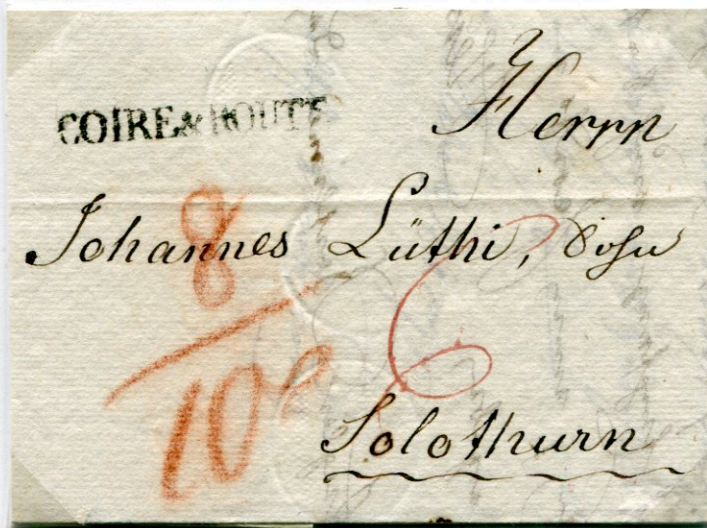 COIRE & ROUTE
Herrn
Johannes Lüthi, Sohn
8
6
10
Solothurn